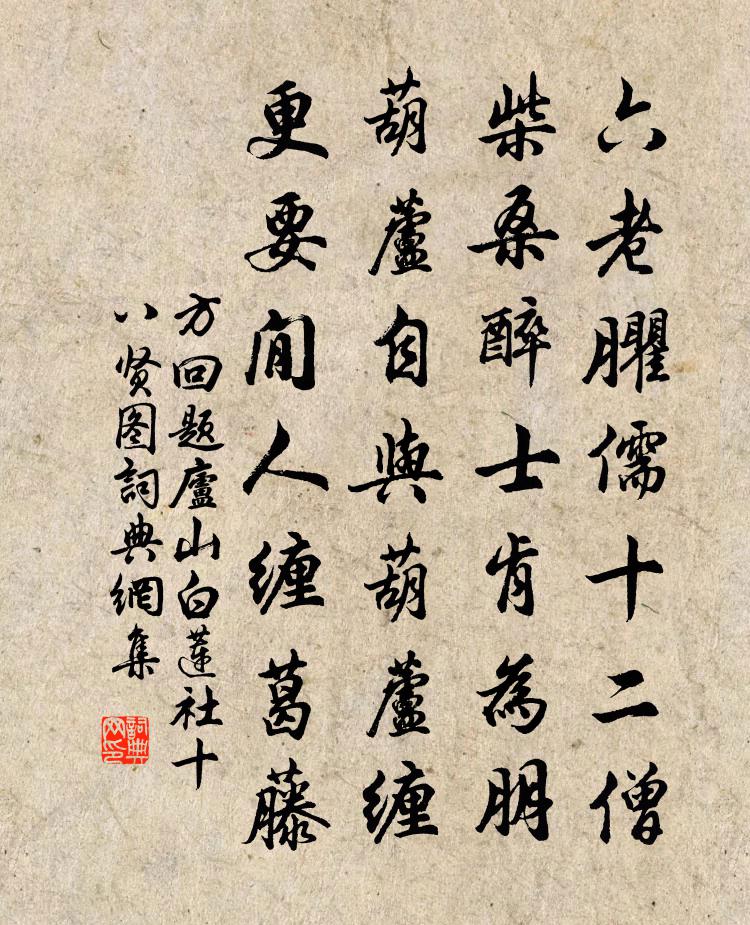 六老臞儒十二僧
柴桑醉士肯為朋
葫蘆自與葫蘆纏
更要閒人缠葛藤
方回题廬山白蓮社十
八贤图詞典網集
詞典網印